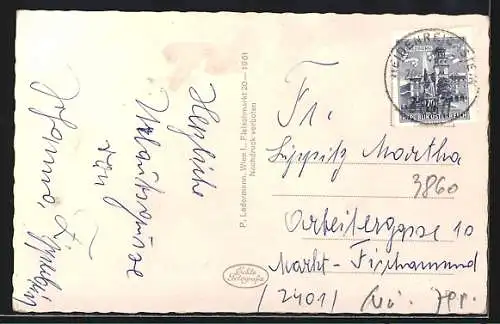 Herzliche
Urlaubsgrüsse
von
Johanna,
P. Ledermann, Wien I., Fleischmarkt 20 — 1961
Nachdruck verboten
Echte
Fotografie
HEIDENREICHSTEIN
REPUBLIK ÖSTERREICH
Fr.
Lippitz Martha
3860
Arbeitergasse 10
Markt-Fischamend
(2401)